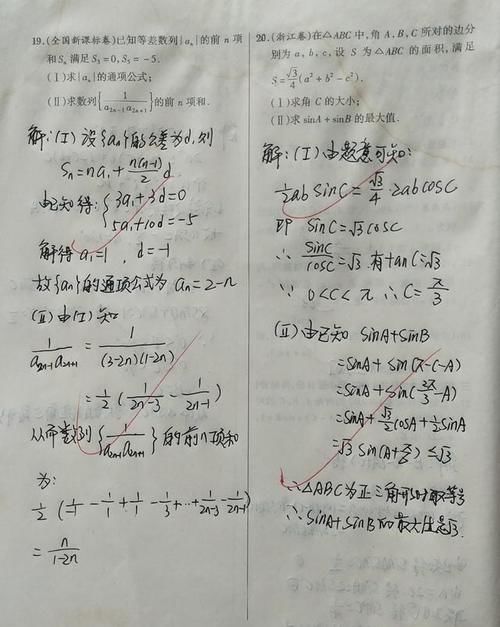 19.(全国新课标卷)已知等差数列{aₙ}的前 n 项
和 Sₙ 满足 S₃=0,S₅=-5.
(Ⅰ)求{aₙ}的通项公式;
(Ⅱ)求数列{1/(a₂ₙ₋₁a₂ₙ₊₁)}的前 n 项和.
解:(Ⅰ)设{aₙ}的公差为d,则
Sₙ=na₁+n(n-1)/2 d
由已知得:{3a₁+3d=0
5a₁+10d=-5
解得 a₁=1,d=-1
故{aₙ}的通项公式为 aₙ=2-n
(Ⅱ)由(Ⅰ)知
1/(a₂ₙ₋₁a₂ₙ₊₁)=1/((3-2n)(1-2n))
=1/2(1/(2n-3)-1/(2n-1))
从而数列{1/(a₂ₙ₋₁a₂ₙ₊₁)}的前n项和
为:
1/2(1/-1-1/1+1/1-1/3+…+1/(2n-3)-1/(2n-1))
=n/(1-2n)
20.(浙江卷)在△ABC 中,角 A、B、C 所对的边分
别为 a、b、c,设 S 为△ABC 的面积,满足
S=√3/4(a²+b²-c²).
(Ⅰ)求角 C 的大小;
(Ⅱ)求 sinA+sinB 的最大值.
解:(Ⅰ)由题意可知:
1/2 ab sinC=√3/4·2abcosC
即 sinC=√3cosC
∴ sinC/cosC=√3 有tanC=√3
∵ 0<C<π ∴C=π/3
(Ⅱ)由已知 sinA+sinB
=sinA+sin(π-C-A)
=sinA+sin(2π/3-A)
=sinA+√3/2cosA+1/2sinA
=√3sin(A+π/6)≤√3
∴△ABC为正三角形时取等号
∴sinA+sinB的最大值是√3.